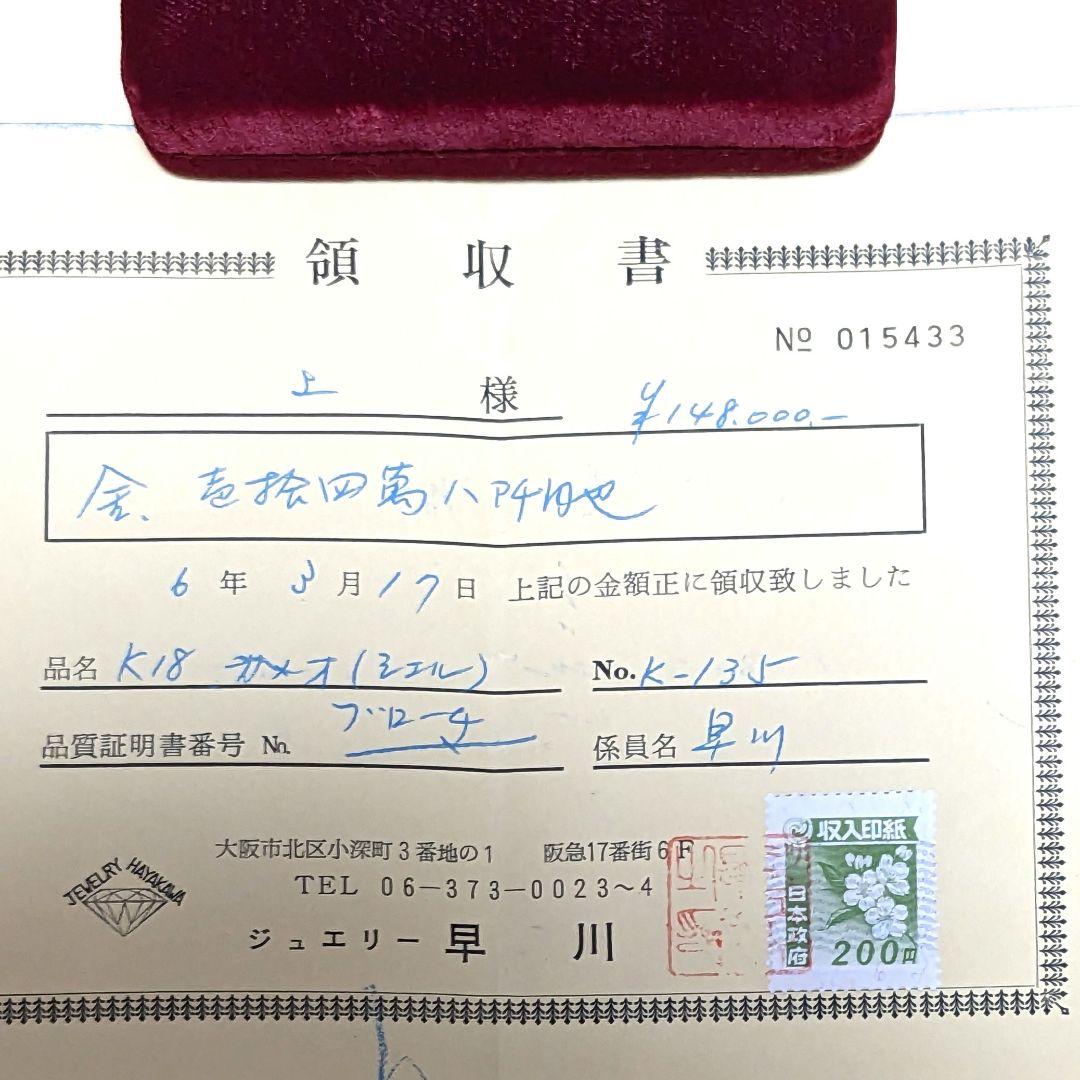 領収書
No 015433
上 様 ¥148.000.-
金、壱拾四萬八阡円也
6年3月17日 上記の金額正に領収致しました
品名 K18 カメオ(シエル) No. K-135
ブローチ
品質証明書番号 No. 係員名 早川
収入印紙
大阪市北区小深町3番地の1 阪急17番街6F
JEVELRY HAYAKAWA
TEL 06-373-0023~4
日本政府
ジュエリー 早川
200円